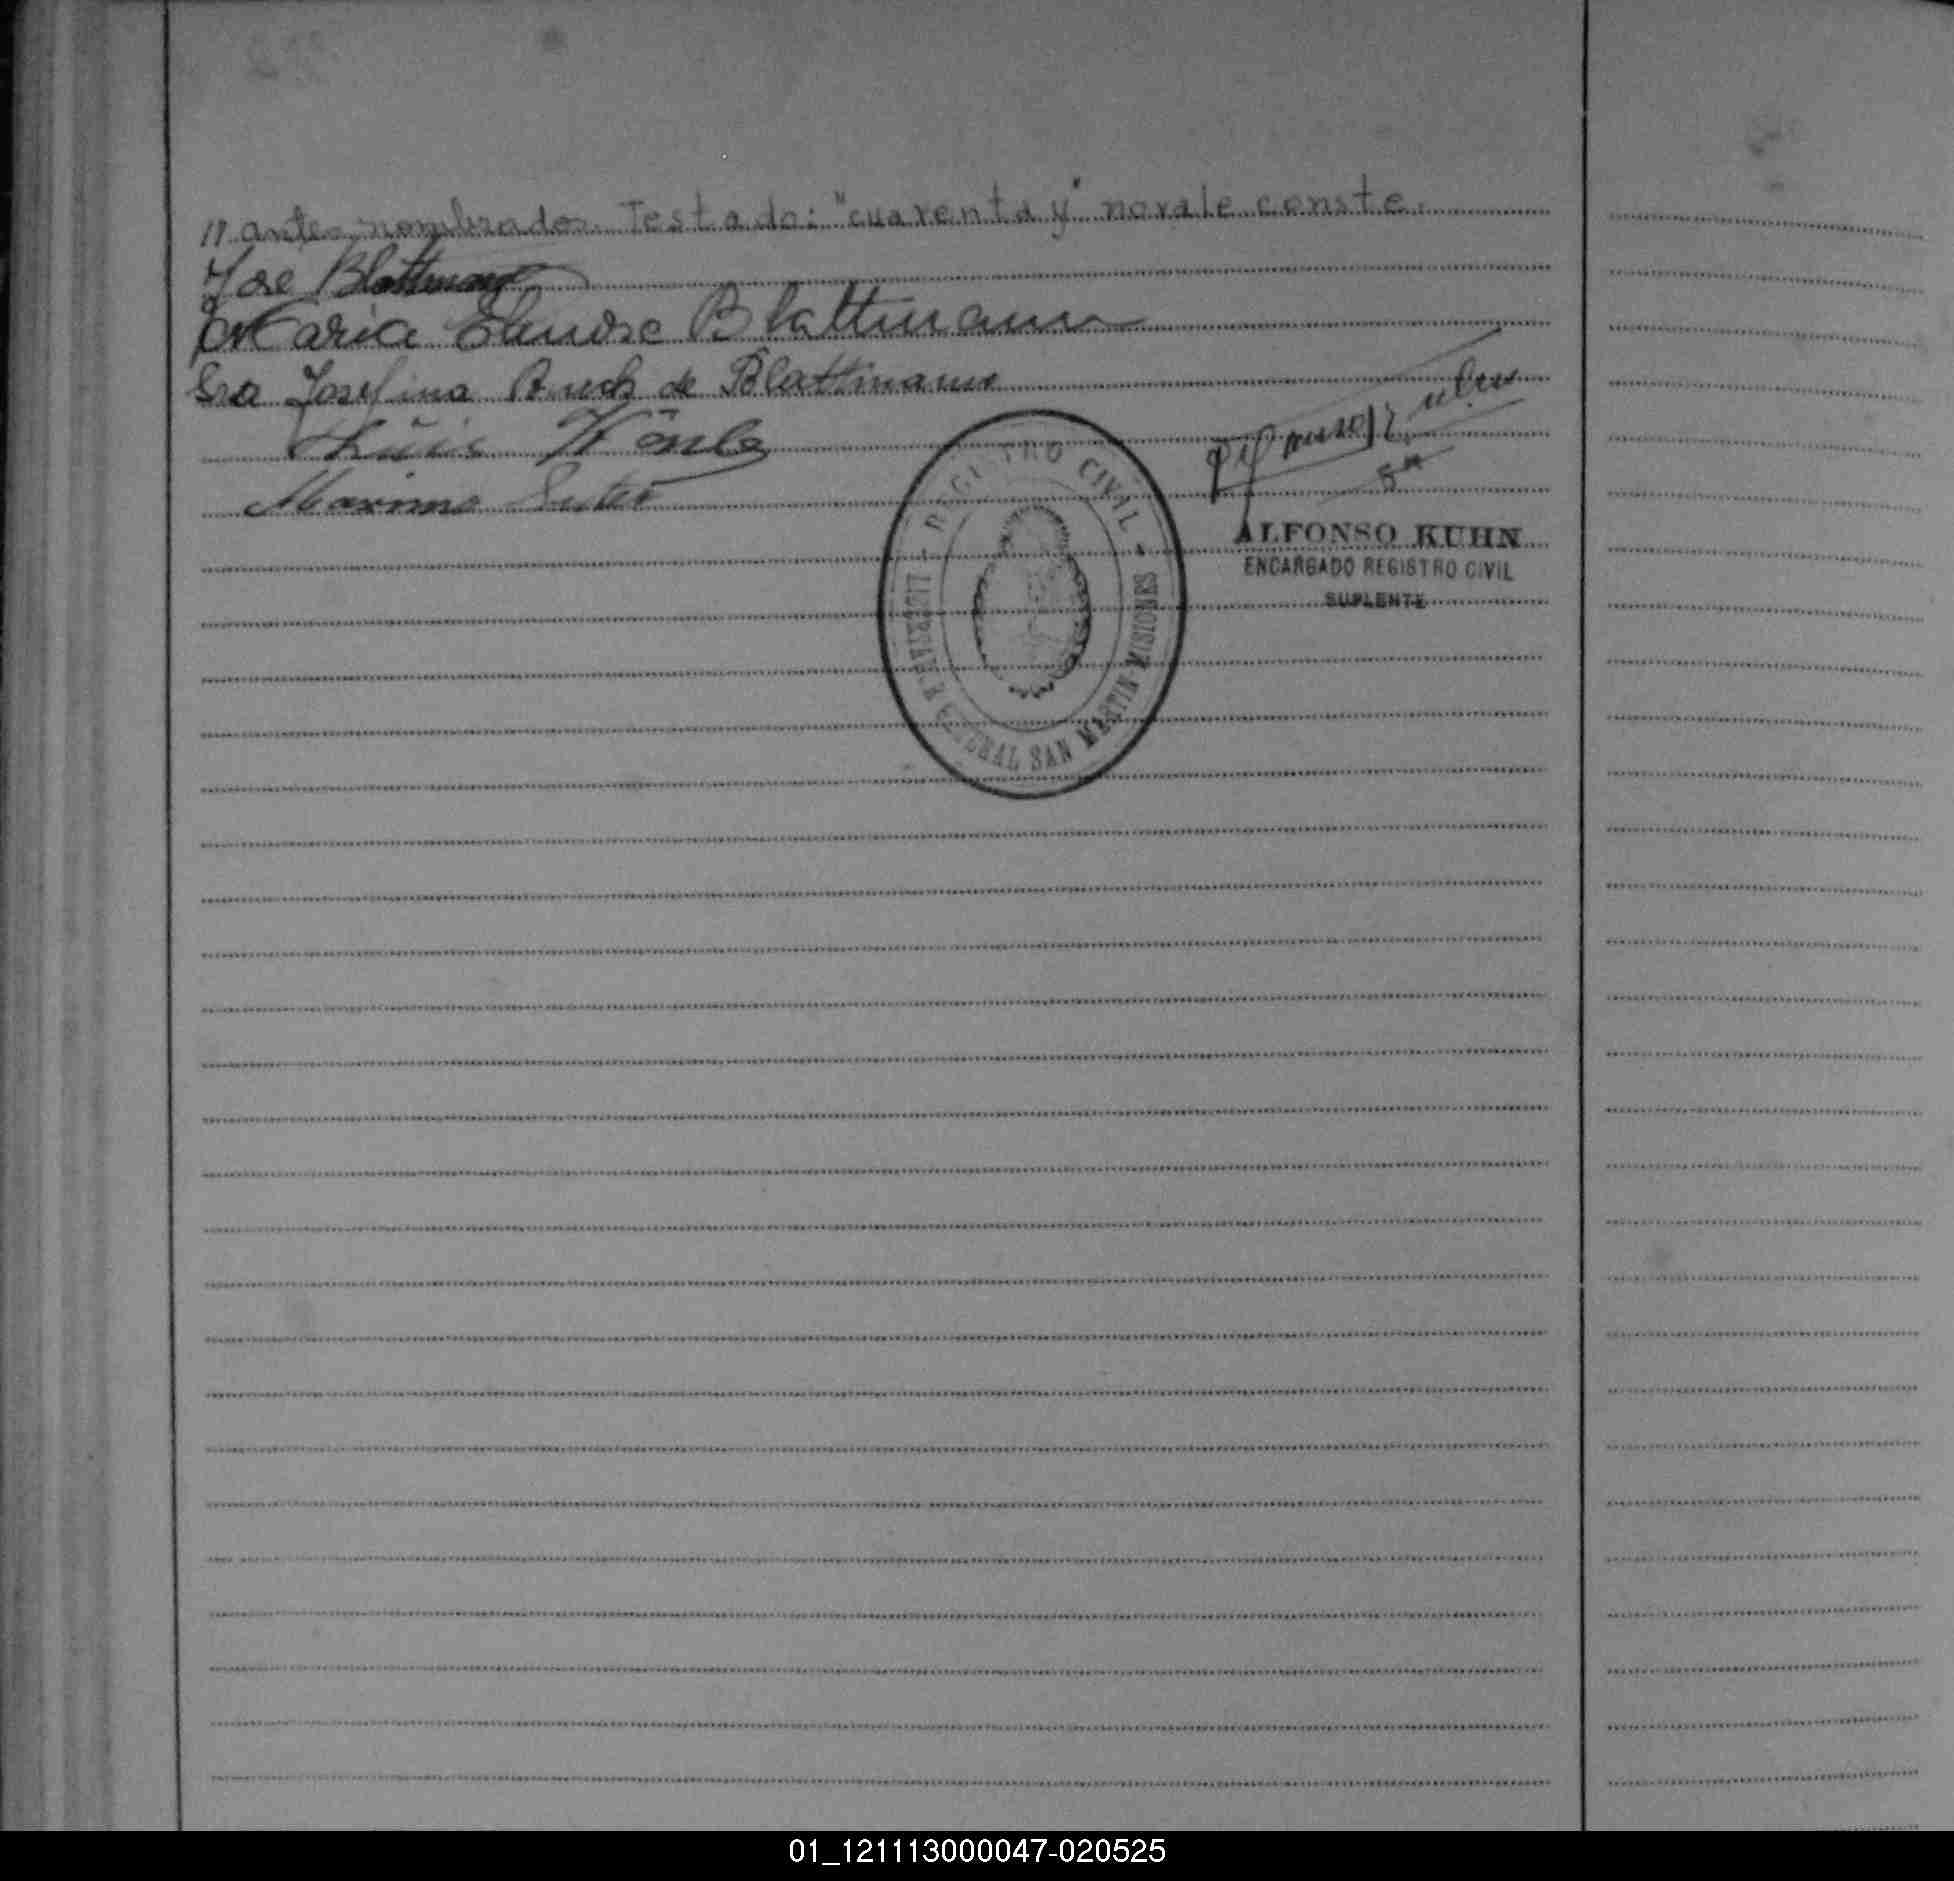 11 antes nombrados. Testado: "cuarenta y" no vale conste.
Jose Blattmann
Maria Blattmann
Sra Josefina Buch de Blattmann
Luis
Maximo Suter
REGISTRO CIVIL
GENERAL SAN MARTIN - MISIONES
ALFONSO KUHN
ENCARGADO REGISTRO CIVIL
SUPLENTE
01_121113000047-020525